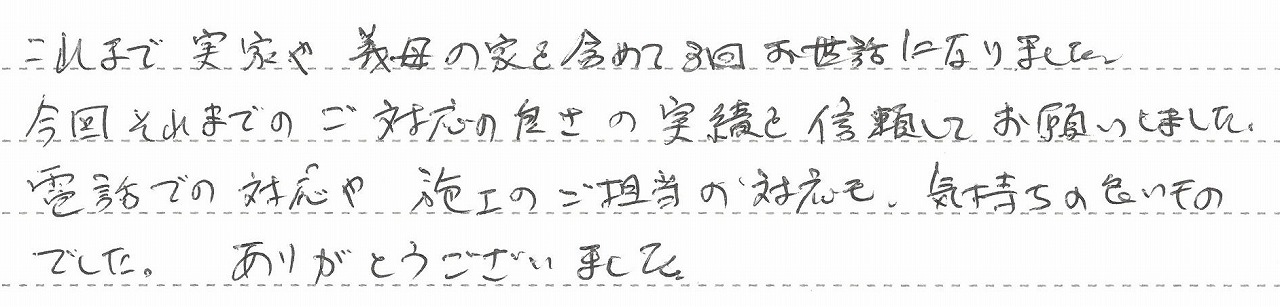 これまで実家や義母の家を含めて3回お世話になりました。
今回それまでのご対応の良さの実績を信頼してお願いしました。
電話での対応や施工のご担当の対応も、気持ちの良いもの
でした。ありがとうございました。